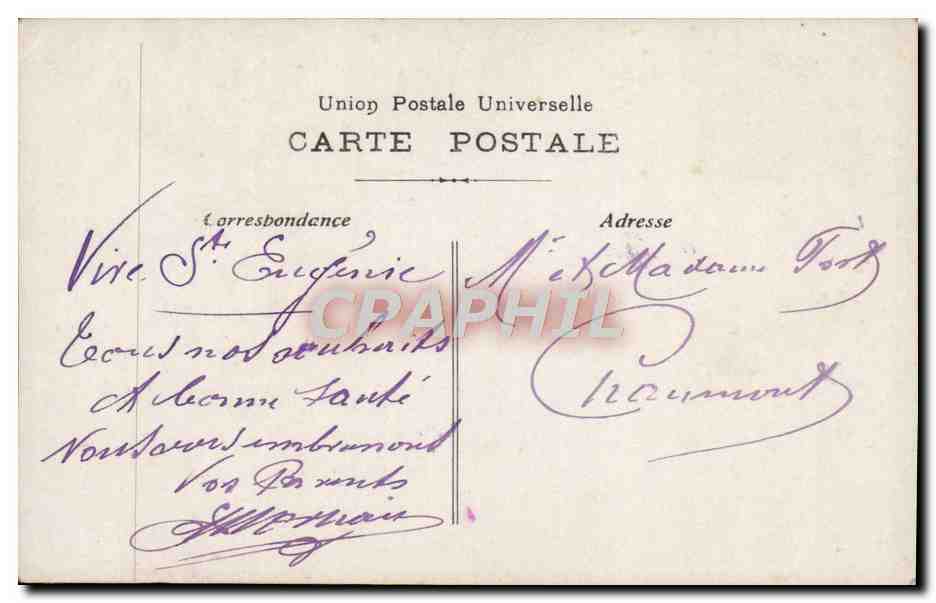 Union Postale Universelle
CARTE POSTALE
Correspondance
Vive Ste Eugénie
Tous nos souhaits
et bonne santé
Nous vous embrassont
Vos Parents
Adresse
Mr et Madame Fort
Chaumont
CPAPHIL